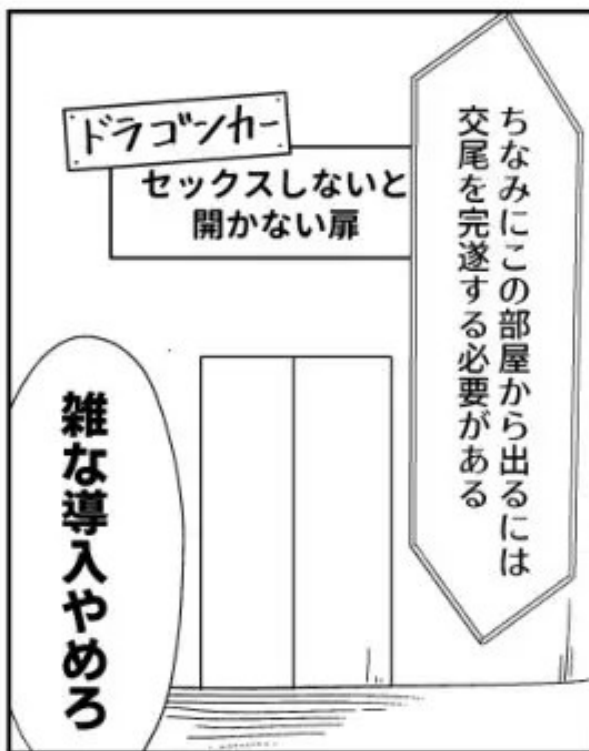 ちなみにこの部屋から出るには
交尾を完遂する必要がある
ドラゴンカー
セックスしないと
開かない扉
雑な導入やめろ